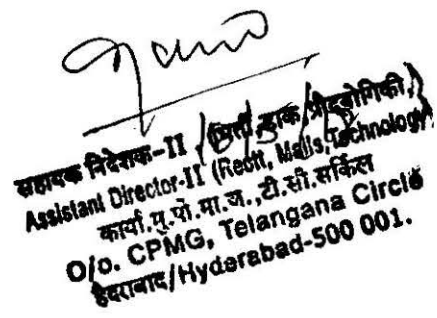 सहायक निदेशक-II (भर्ती, डाक, प्रौद्योगिकी)
Assistant Director-II (Rectt, Mails, Technology)
कार्या.मु.पो.मा.ज.,टी.सी.सर्किल
O/o. CPMG, Telangana Circle
हैदराबाद/Hyderabad-500 001.